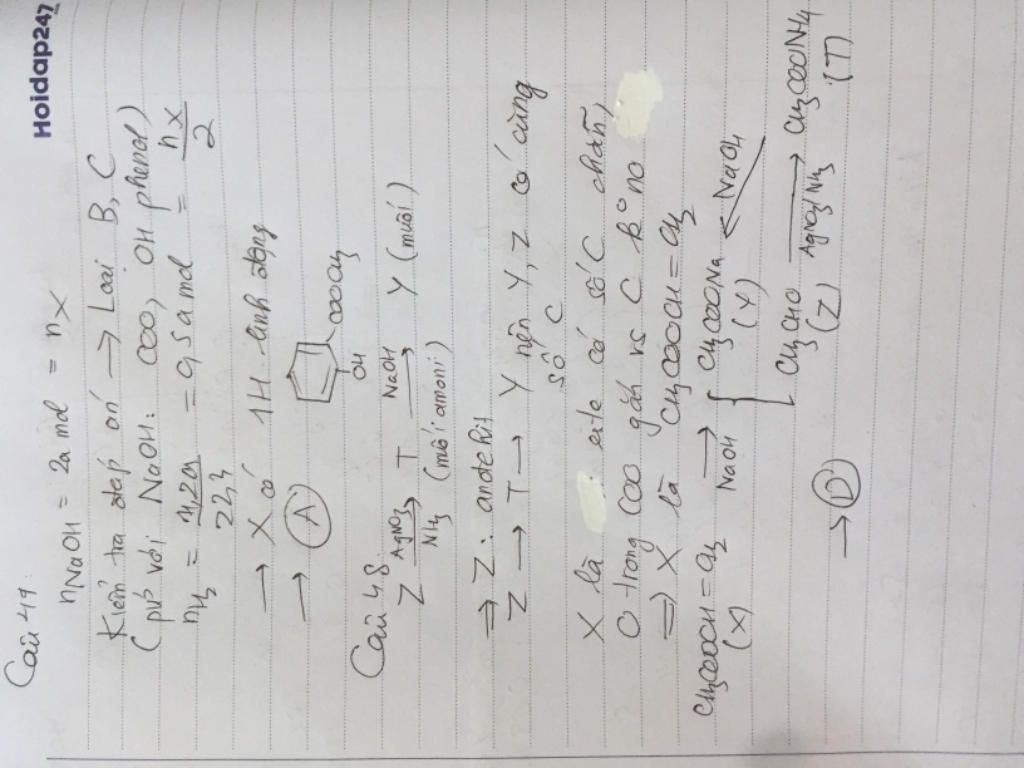 Hoidap247
Câu 49:
nNaOH = 2a mol = nX
Kiểm tra đáp án → Loại B, C
(pứ với NaOH: COO, OH phenol)
nH2 = 11,2a / 22,4 = 0,5a mol = nX / 2
→ X có 1H linh động
→ (A) OH COOCH3
Câu 48
Z AgNO3/NH3 → T NaOH → Y (muối)
(muối amoni)
⇒ Z: andehit
Z → T → Y nên Y, Z có cùng
số C
X là este có số C chẵn,
O trong COO gắn vs C k° no
⇒ X là CH3COOCH=CH2
CH3COOCH=CH2 NaOH → { CH3COONa ← NaOH
(X) (Y)
CH3CHO AgNO3/NH3 → CH3COONH4
(Z) (T)
→ (D)